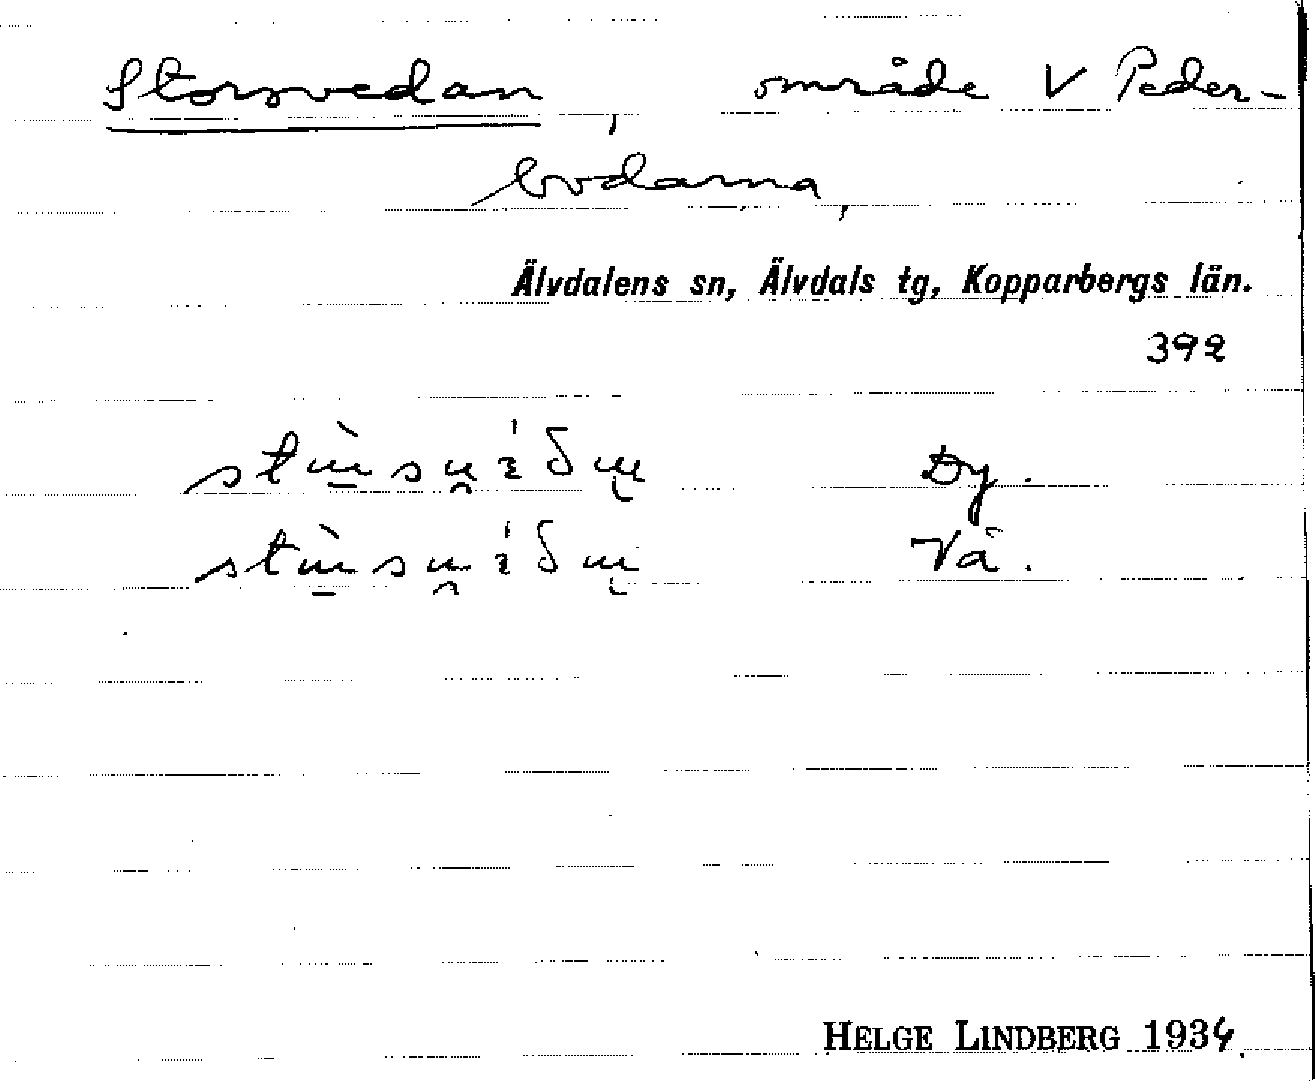 Storsvedan, område V Peder-
bodarna,
Älvdalens sn, Älvdals tg, Kopparbergs län.
392
Dy.
Vä.
HELGE LINDBERG 1934.